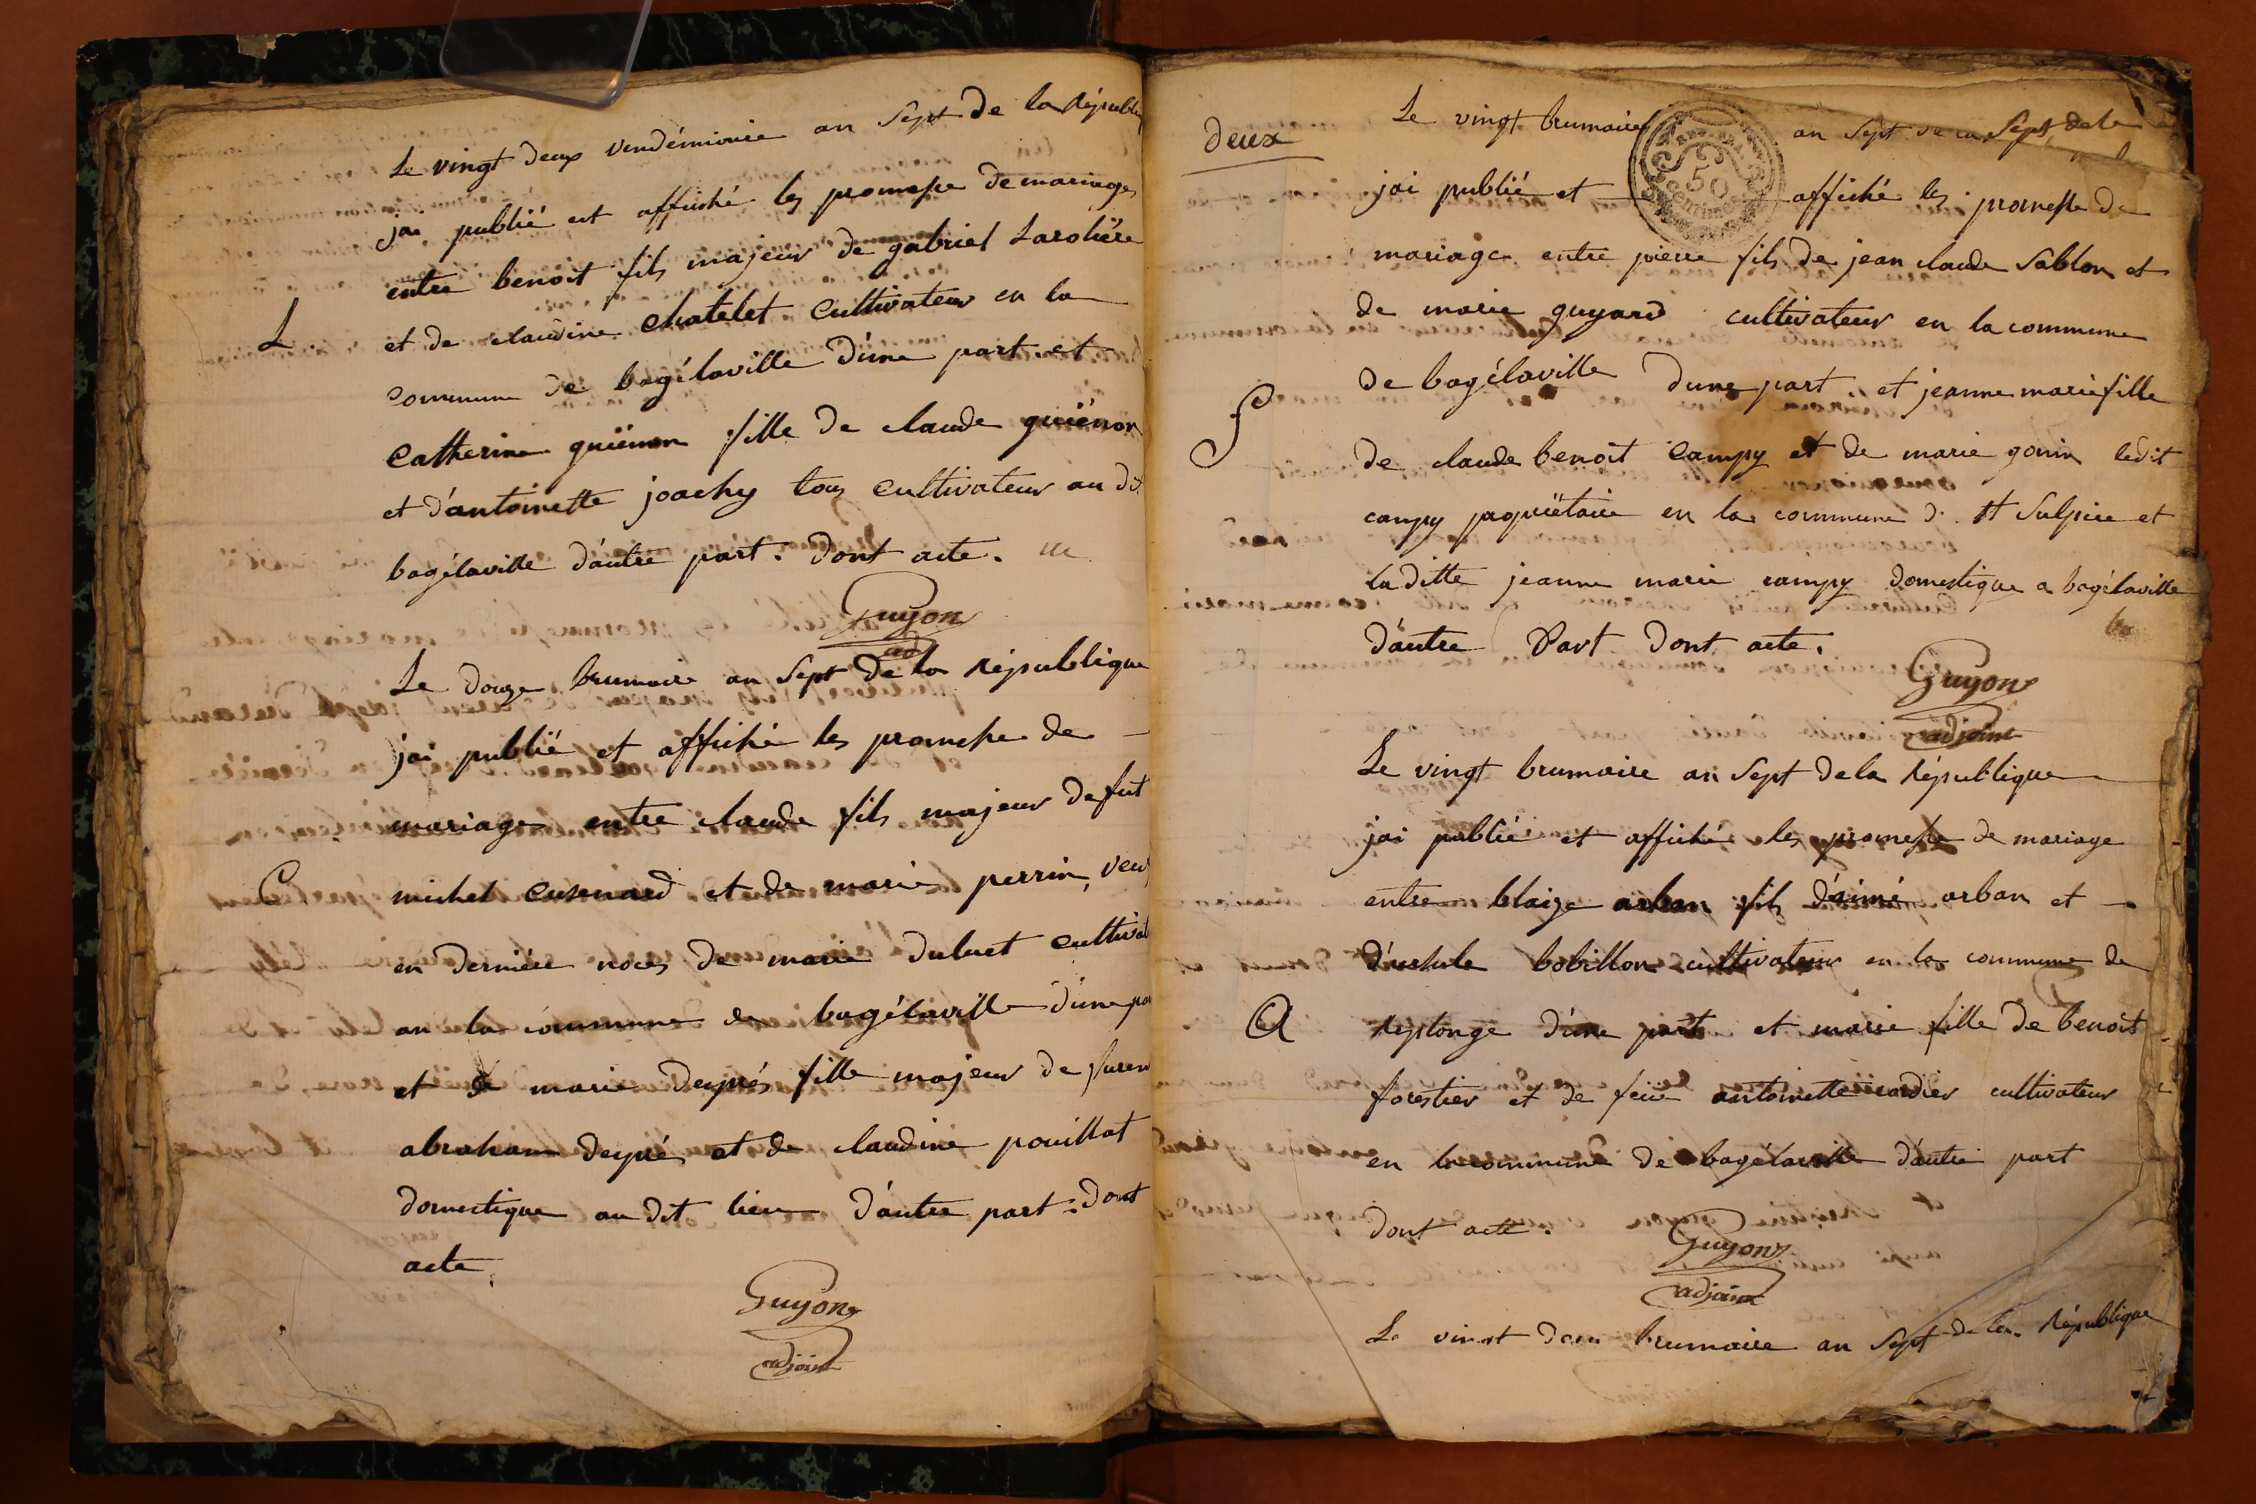 Le vingt deux vendémiaire an Sept de la Républi
jai publié et affiché les promesse de mariages
entre benoit fils majeur de gabriel Larolière
L
et de claudine chatelet Cultivateur en la
commune de bagélaville d'une part et
Catherine guiénon fille de claude guiénon
et d'antoinette joachy tous cultivateur au dt
bagélaville d'autre part. Dont acte.
Guyon
ad
Le douze brumaire an Sept de la République
jai publié et affiché les promesse de
mariage entre claude fils majeur defut
C
michel cusenard et de marie perrin, veu
en dernière noces de marie duluet cultivat
an la commune de bagélaville d'une pa
et marie després fille majeur de
abraham després et de claudine pouillat
domestique au dit lieu d'autre part: Dont
acte.
Guyon
adjoint
deux
Le vingt brumaire an Sept de la Sept dela
50 centimes
jai publié et affiché les promesse de
mariage entre pierre fils de jean claude Sablon et
de marie guyard cultivateur en la commune
de bagélaville dune part. et jeanne marie fille
S
de claude benoit Campy et de marie gonin ledit
campy propriétaire en la commune d. St Sulpice et
Laditte jeanne marie campy domestique a bagélaville
d'autre Part Dont acte.
Guyon
adjoint
Le vingt brumaire an Sept dela République
jai publié et affiché les promesse de mariage
entre blaize arban fils d'aimé arban et
d'ursule bobillon cultivateur en la commune de
A
Replonge d'une part et marie fille de benoit
forestier et de feüe antoinette cordier cultivateur
en la commune de bagélaville d'autre part
dont acte.
Guyon
adjoint
Le vingt deux brumaire an Sept de la République